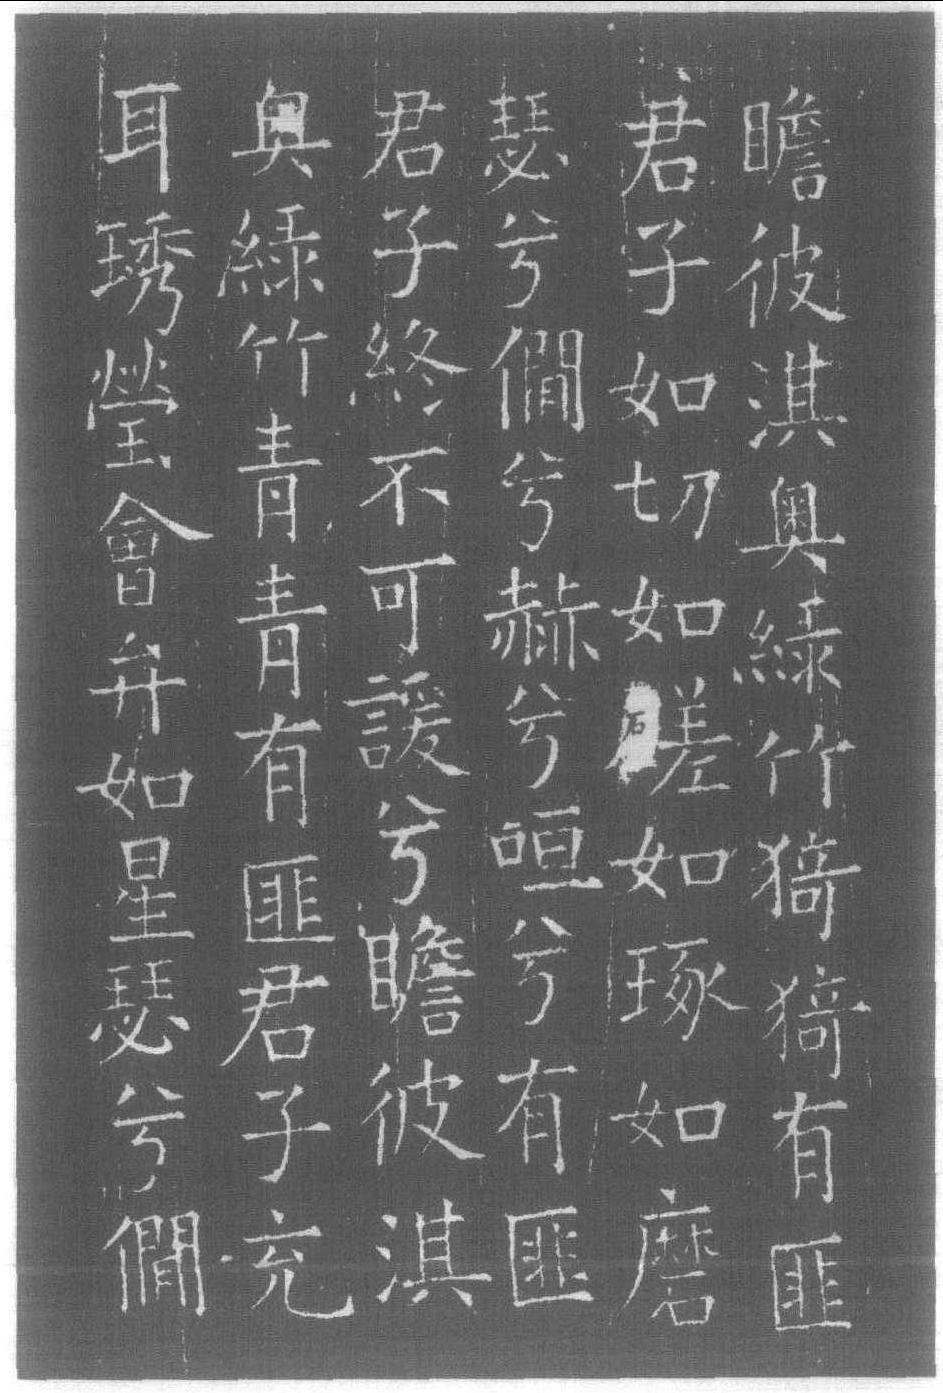 瞻彼淇奧綠竹猗猗有匪
君子如切如磋如琢如磨
瑟兮僩兮赫兮咺兮有匪
君子終不可諼兮瞻彼淇
奧綠竹青青有匪君子充
耳琇瑩會弁如星瑟兮僩